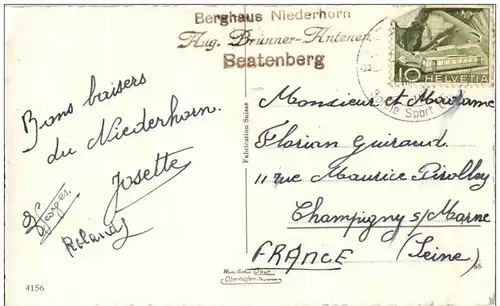 Berghaus Niederhorn
Aug. Brunner-Antenen
Beatenberg
10 HELVETIA
Sport
Bons baisers
du Niederhorn.
Josette
Georges.
Roland
4156
Fabrication Suisse
Monsieur et Madame
Florian Guiraud
11 rue Maurice
Champigny s/Marne
FRANCE (Seine)